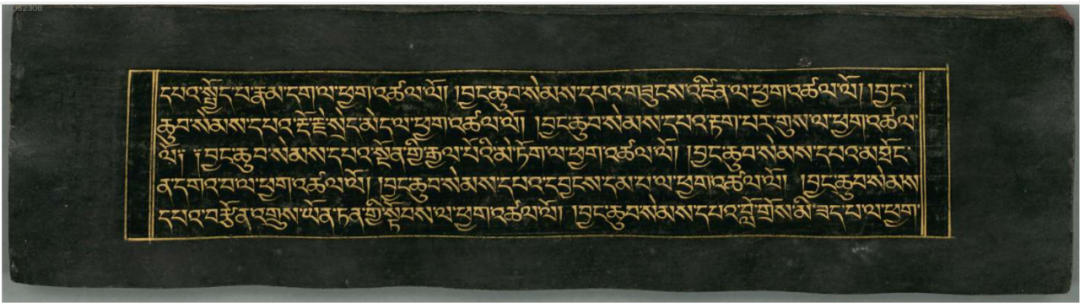 དཔའ་སྦྱོང་བ་རྣམ་དག་ལ་ཕྱག་འཚལ་ལོ། །བྱང་ཆུབ་སེམས་དཔའ་གཟུངས་འཛིན་ལ་ཕྱག་འཚལ་ལོ། །བྱང་
ཆུབ་སེམས་དཔའ་རྡོ་རྗེ་སྲེད་མེད་ལ་ཕྱག་འཚལ་ལོ། །བྱང་ཆུབ་སེམས་དཔའ་རྟག་པར་གུས་ལ་ཕྱག་འཚལ་
ལོ། །བྱང་ཆུབ་སེམས་དཔའ་སྟོན་གྱི་རྒྱལ་པོའི་མེ་ཏོག་ལ་ཕྱག་འཚལ་ལོ། །བྱང་ཆུབ་སེམས་དཔའ་མཐོང་
ན་དགའ་བ་ལ་ཕྱག་འཚལ་ལོ། །བྱང་ཆུབ་སེམས་དཔའ་དབྱངས་དམ་པ་ལ་ཕྱག་འཚལ་ལོ། །བྱང་ཆུབ་སེམས་
དཔའ་བརྩོན་འགྲུས་ཡོན་ཏན་གྱི་སྟོབས་ལ་ཕྱག་འཚལ་ལོ། །བྱང་ཆུབ་སེམས་དཔའ་བློ་གྲོས་མི་ཟད་པ་ལ་ཕྱག་